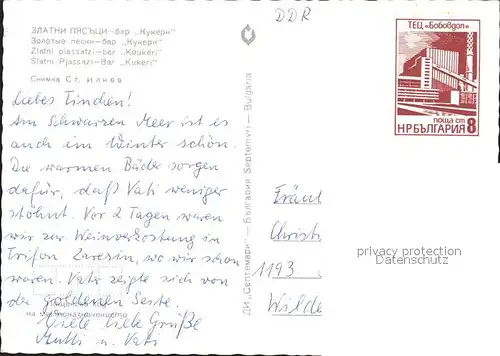 DDR
ЗЛАТНИ ПЯСЪЦИ—бар „Кукери"
Золотые пески—бар „Кукери"
Zlatni piassatzi—bar „Koukeri"
Slatni Pjassazi—Bar „Kukeri"
Снимка Ст. Илиев
Liebes Tinchen!
Am Schwarzen Meer ist es
auch im Winter schön.
Die warmen Bäder sorgen
dafür, daß Vati weniger
stöhnt. Vor 2 Tagen waren
wir zur Weinverkostung in
Trifon Zarezin, wo wir schon
waren. Vater zeigte sich von
der goldenen Seite.
Viele liebe Grüße
Mutti u. Vati
на местоназначението
ДИ „Септември" — България Septemvri — Bulgaria
ТЕЦ „Бобовдол"
ПОЩА СТ 8
НР БЪЛГАРИЯ
Fräul
Christi
1193
Wilde
privacy protection
Datenschutz